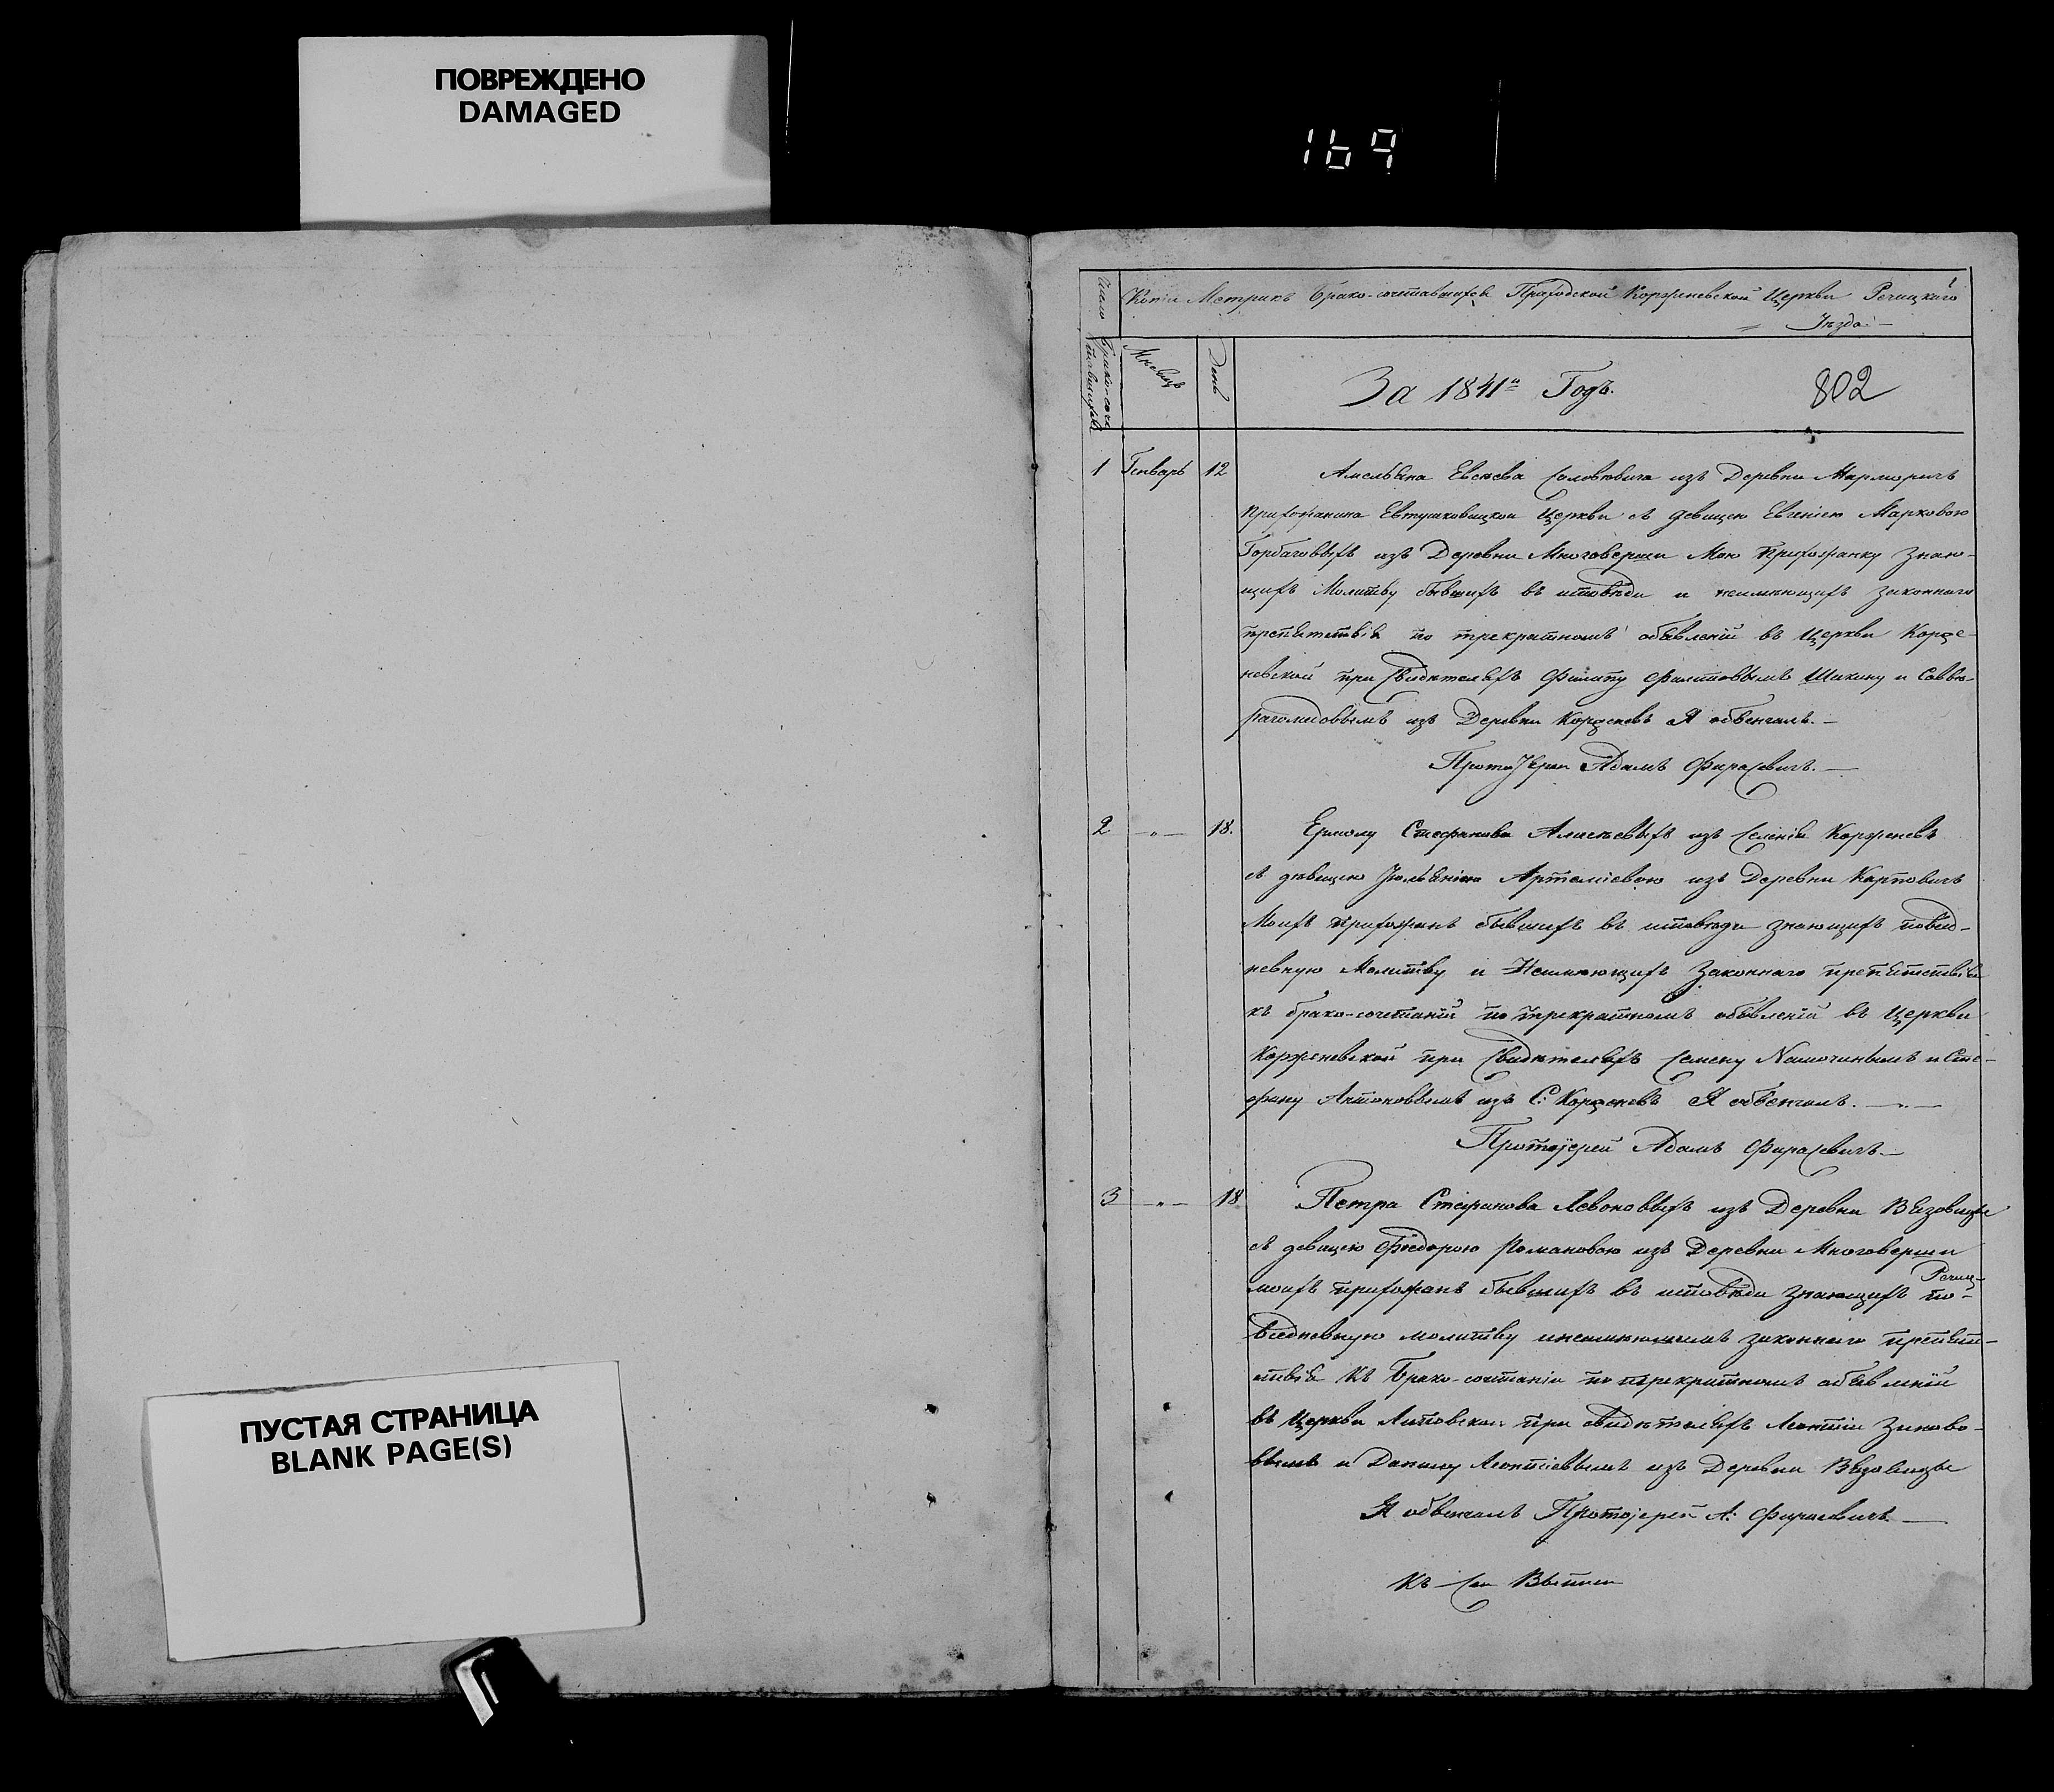 ПОВРЕЖДЕНО
DAMAGED
169
Число Брако-соче
Копіи Метрикъ Брако-сочетавшихся Приходской Корженевской Церкви Речицкаго
Уѣзда
Мѣсяцъ
День
За 1841й Годъ.
802
1 Генварь 12 Амельяна Евсѣева из Деревни
Прихожанина Церкви съ девицею Евгеніею Марковою
изъ Деревни Многоверши Мою Прихожанку знаю-
щихъ Молитву бывшихъ въ исповѣди и неимѣющихъ законнаго
препятствія по трекратномъ объявленіи въ Церкви Корже-
невской при Свидѣтеляхъ Филипу Филиповымъ и Савве
изъ Деревни Корженевъ Я обвенчалъ.
ПротоІереи Адамъ Фирасевичъ.
2 18. Ермолу Стефанова изъ Селенія Корженевъ
съ дѣвицею Юльяніею Артеміевою изъ Деревни Карповичъ
Моихъ прихожанъ бывшихъ въ исповѣди знающихъ повсед-
невную Молитву и Неимѣющихъ Законнаго препятствія
къ брако-сочетаніи по трекратномъ объявленіи въ Церкви
Корженевской при Свидѣтеляхъ Семену и Сте-
фану Антоновымъ изъ С: Корженевъ Я обвенчалъ.
Протоіерей Адамъ Фирасевичъ.
3 18 Петра Стефанова Левоновыхъ изъ Деревни Вязовицы
съ девицею Феодорою Романовою изъ Деревни Многоверши
Речиц-
моихъ прихожанъ бывшихъ въ исповѣди знающихъ по-
вседневную молитву инеимѣющимъ законнаго препят-
ствія къ Брако-сочетаніи по трекратномъ объявленіи
въ Церкви Липовской при свидѣтеляхъ Леонтіи Зиново-
вымъ и Данилу Леонтіевымъ изъ Деревни Вязовицы
Я обвенчалъ Протоіерей А: Фирасевичъ
Къ Сей Выписи
ПУСТАЯ СТРАНИЦА
BLANK PAGE(S)